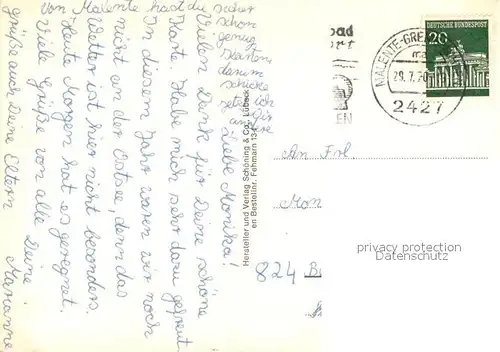 Von Malente hast du sicher
schon
genug
Karten
darum
schicke
ich
Liebe Monika!
Vielen Dank für Deine schöne
Karte. Habe mich sehr darüber gefreut
In diesem Jahr waren wir noch
nicht an der Ostsee, denn das
Wetter ist hier nicht besonders.
Heute Morgen hat es geregnet.
Viele Grüße von alle Deine
Marianne
grüße auch Deine Eltern
Hersteller und Verlag Schöning & Co., Lübeck
en Bestellnr. Fehmarn 134
bad
ort
EN
MALENTE-GRE
29.7.70
2427
DEUTSCHE BUNDESPOST
20
An Frl.
Mon
824 B
privacy protection
Datenschutz